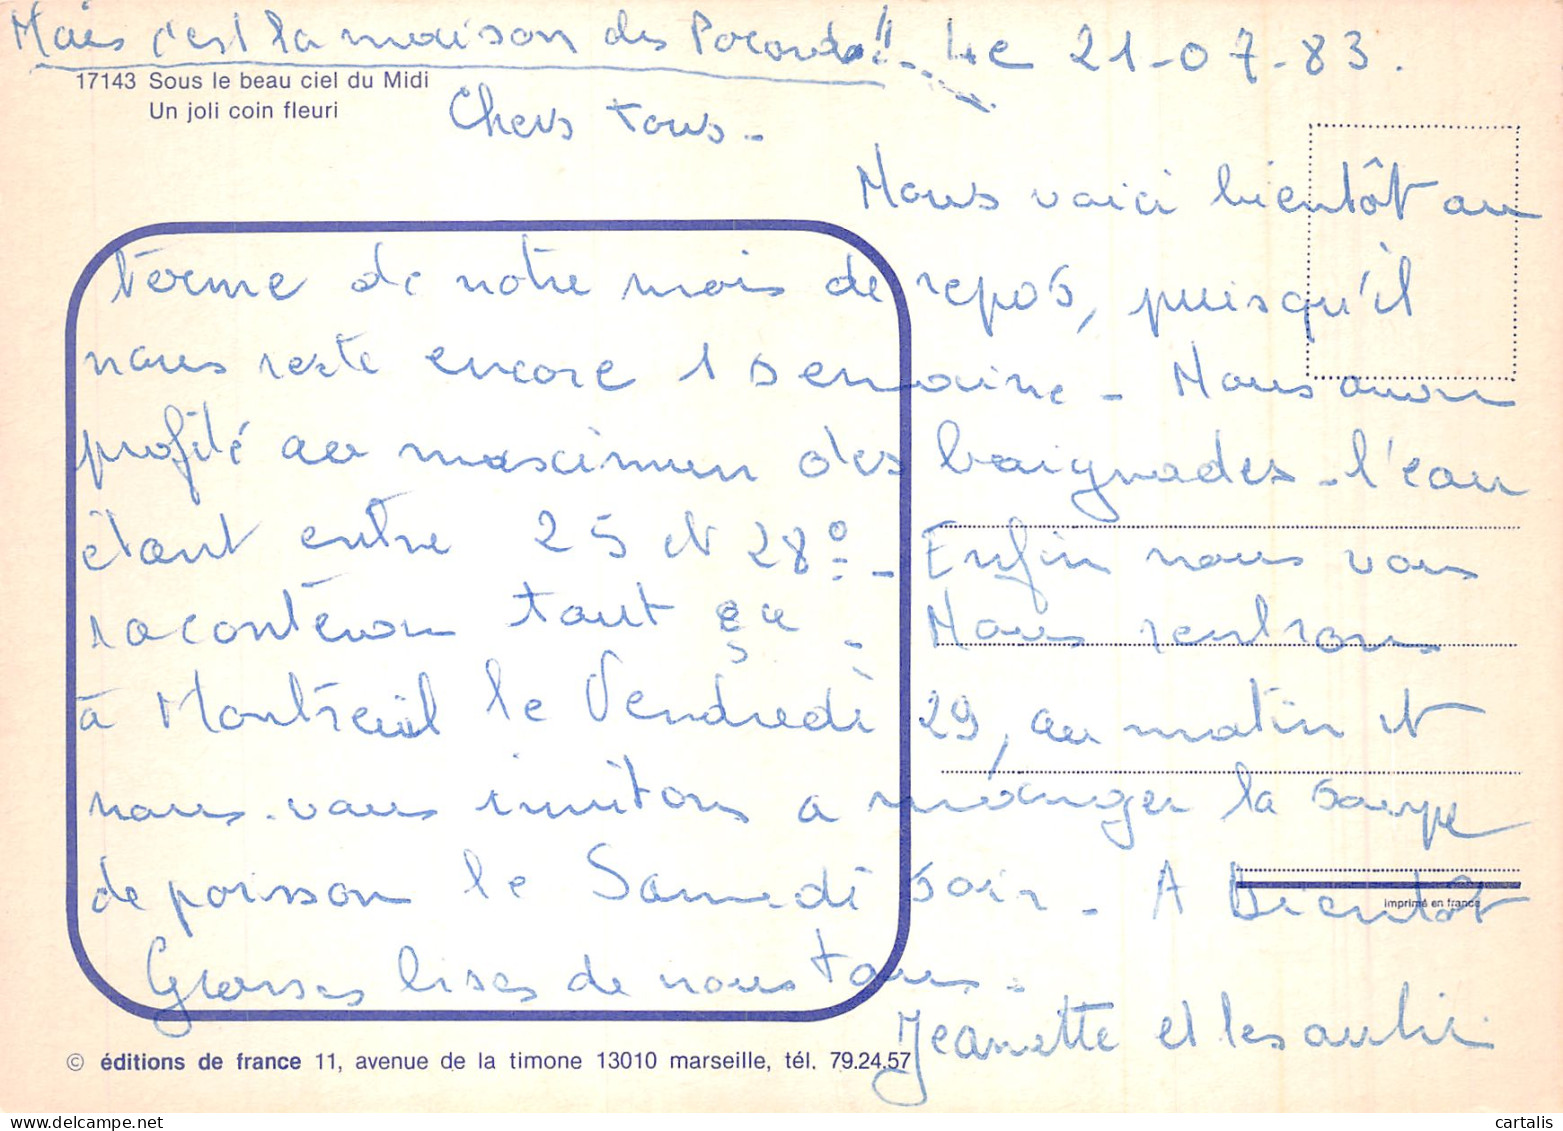 Mais c'est la maison des !! Le 21-07-83.
17143 Sous le beau ciel du Midi
Un joli coin fleuri
Chers tous -
Nous voici bientôt au
terme de notre mois de repos, puisqu'il
nous reste encore 1 semaine - Nous avons
profité au maximum des baignades - l'eau
étant entre 25 et 28° - Enfin nous vous
raconterons tout ça - Nous rentrons
à Montreuil le Vendredi 29, au matin et
nous vous invitons a manger la soupe
de poisson le Samedi soir - A Bientôt
imprimé en france
Grosses bises de nous tous -
Jeanette et les
© éditions de france 11, avenue de la timone 13010 marseille, tél. 79.24.57
cartalis